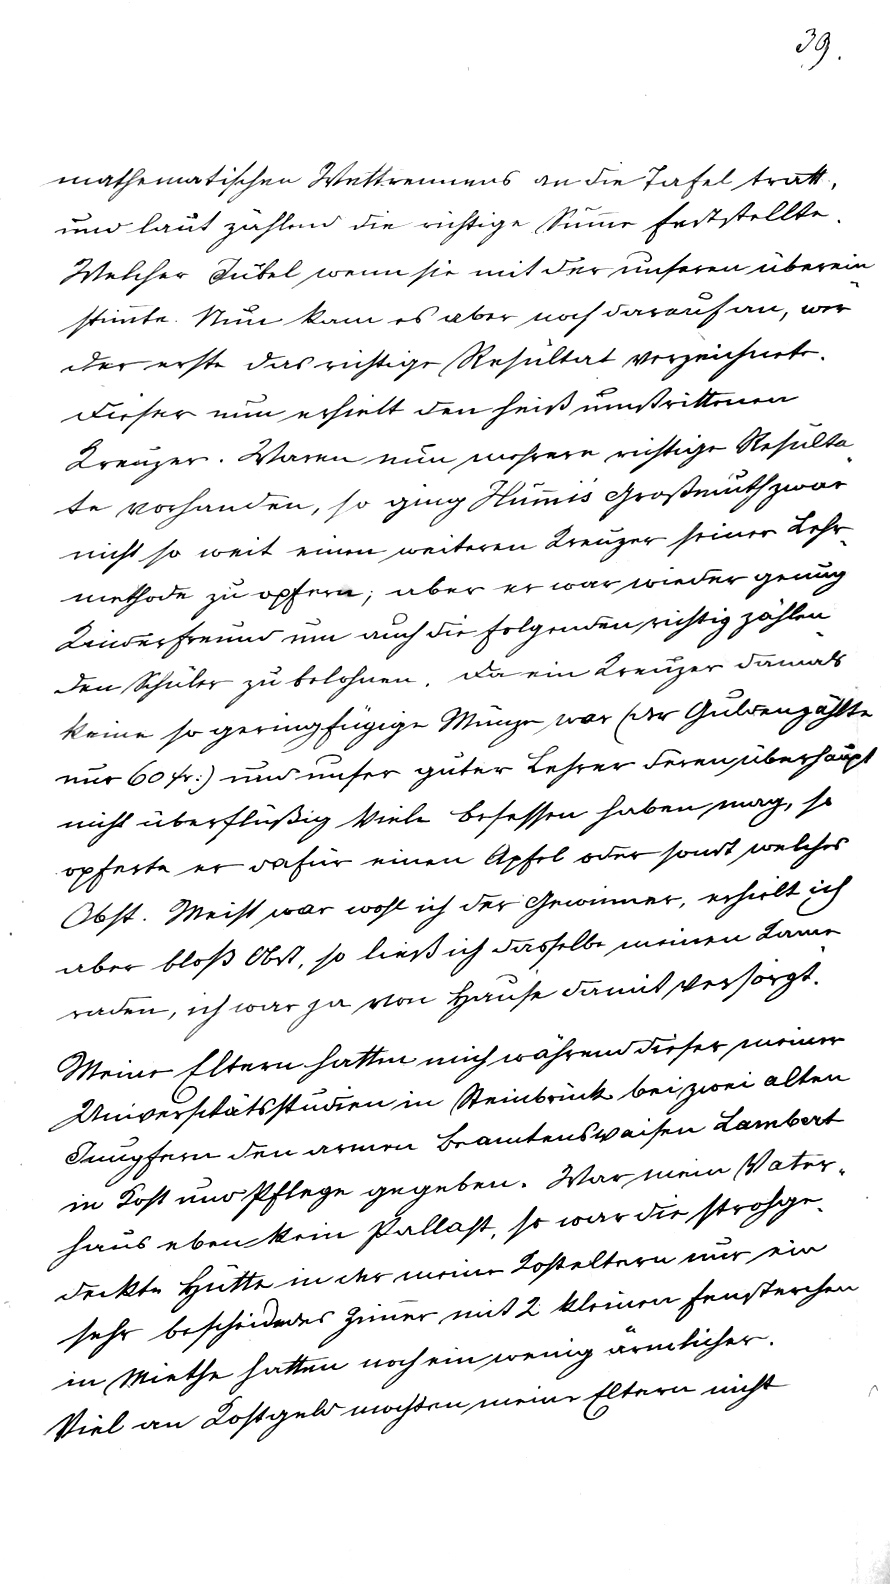 39.
mathematischen Wettrennens an die Tafel tratt,
und laut zählend die richtige Sum̅e feststellte.
Welcher Jubel wenn sie mit der unseren überein
stim̅te. Nun kam es aber noch darauf an, wer
der erste das richtige Resultat verzeichnete.
Dieser nun erhielt den heiß umstrittenen
Kreuzer. Waren nun mehrere richtige Resulta-
te vorhanden, so ging Hum̅is Großmuth zwar
nicht so weit einen weiteren Kreuzer seiner Lehr-
methode zu opfern; aber er war wieder genug
Kinderfreund um auch die folgenden richtig zählen-
den Schüler zu belohnen. Da ein Kreuzer damals
keine so geringfügige Münze war (der Gulden zählte
nur 60 kr:) und unser guter Lehrer deren überhaupt
nicht überflüßig Viele besessen haben mag, so
opferte er dafür einen Apfel oder sonst welches
Obst. Meist war wohl ich der Gewinner, erhielt ich
aber bloß Obst, so ließ ich dasselbe meinen Kame-
raden, ich war ja von Hause damit versorgt.
Meine Eltern hatten mich während dieser meiner
Universitätsstudien in Steinbrück bei zwei alten
Jungfern den armen Beamtenswaisen Lambert
in Kost und Pflege gegeben. War mein Vater-
haus eben kein Pallast, so war die strohge-
deckte Hütte in der meine Kosteltern nur ein
sehr bescheidenes Zim̅er mit 2 kleinen Fensterchen
in Miethe hatten noch ein wenig ärmlicher.
Viel an Kostgeld mochten meine Eltern nicht